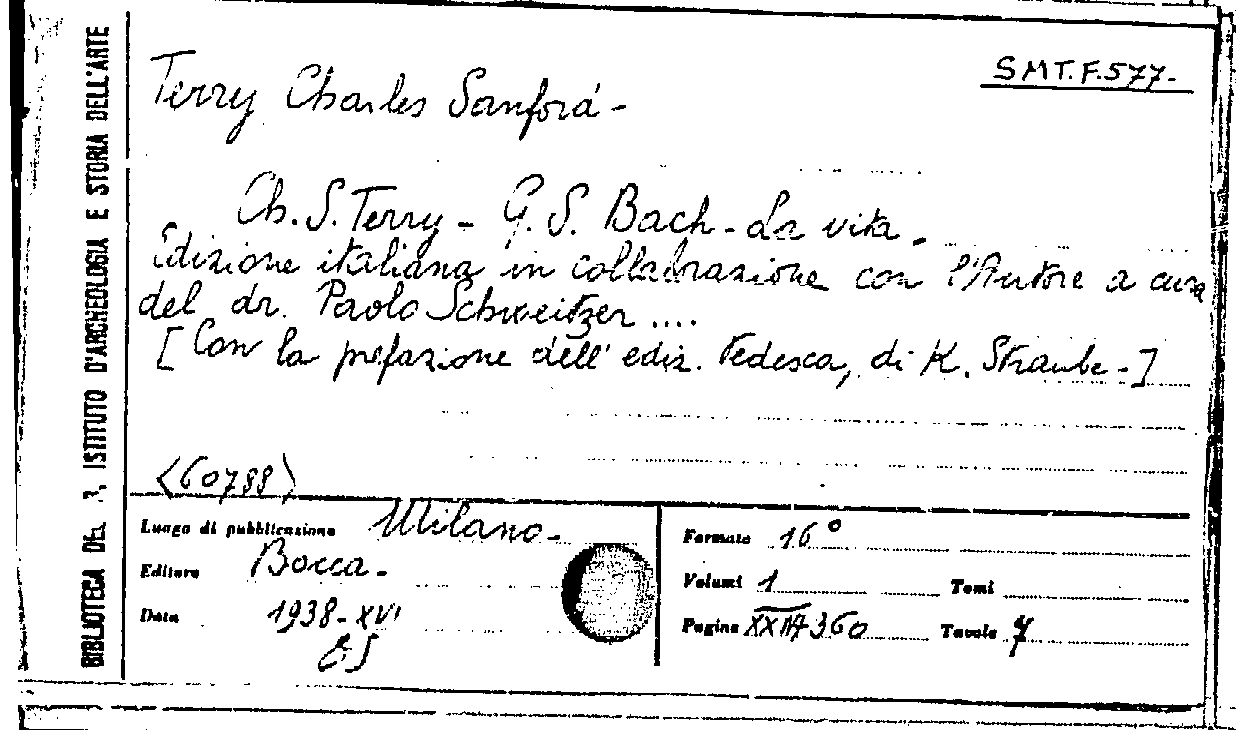 BIBLIOTECA DEL R. ISTITUTO D'ARCHEOLOGIA E STORIA DELL'ARTE
SMT.F.577-
Terry Charles Sanford-
Ch. S. Terry - G. S. Bach - La vita -
Edizione italiana in collaborazione con l'Autore a cura
del dr. Paolo Schweitzer ....
[Con la prefazione dell'ediz. tedesca, di K. Straube-]
<60788>
Luogo di pubblicazione Milano-
Editore Bocca-
Data 1938-XVI
Formato 16°
Volumi 1 Tomi
Pagine 360 Tavole 7